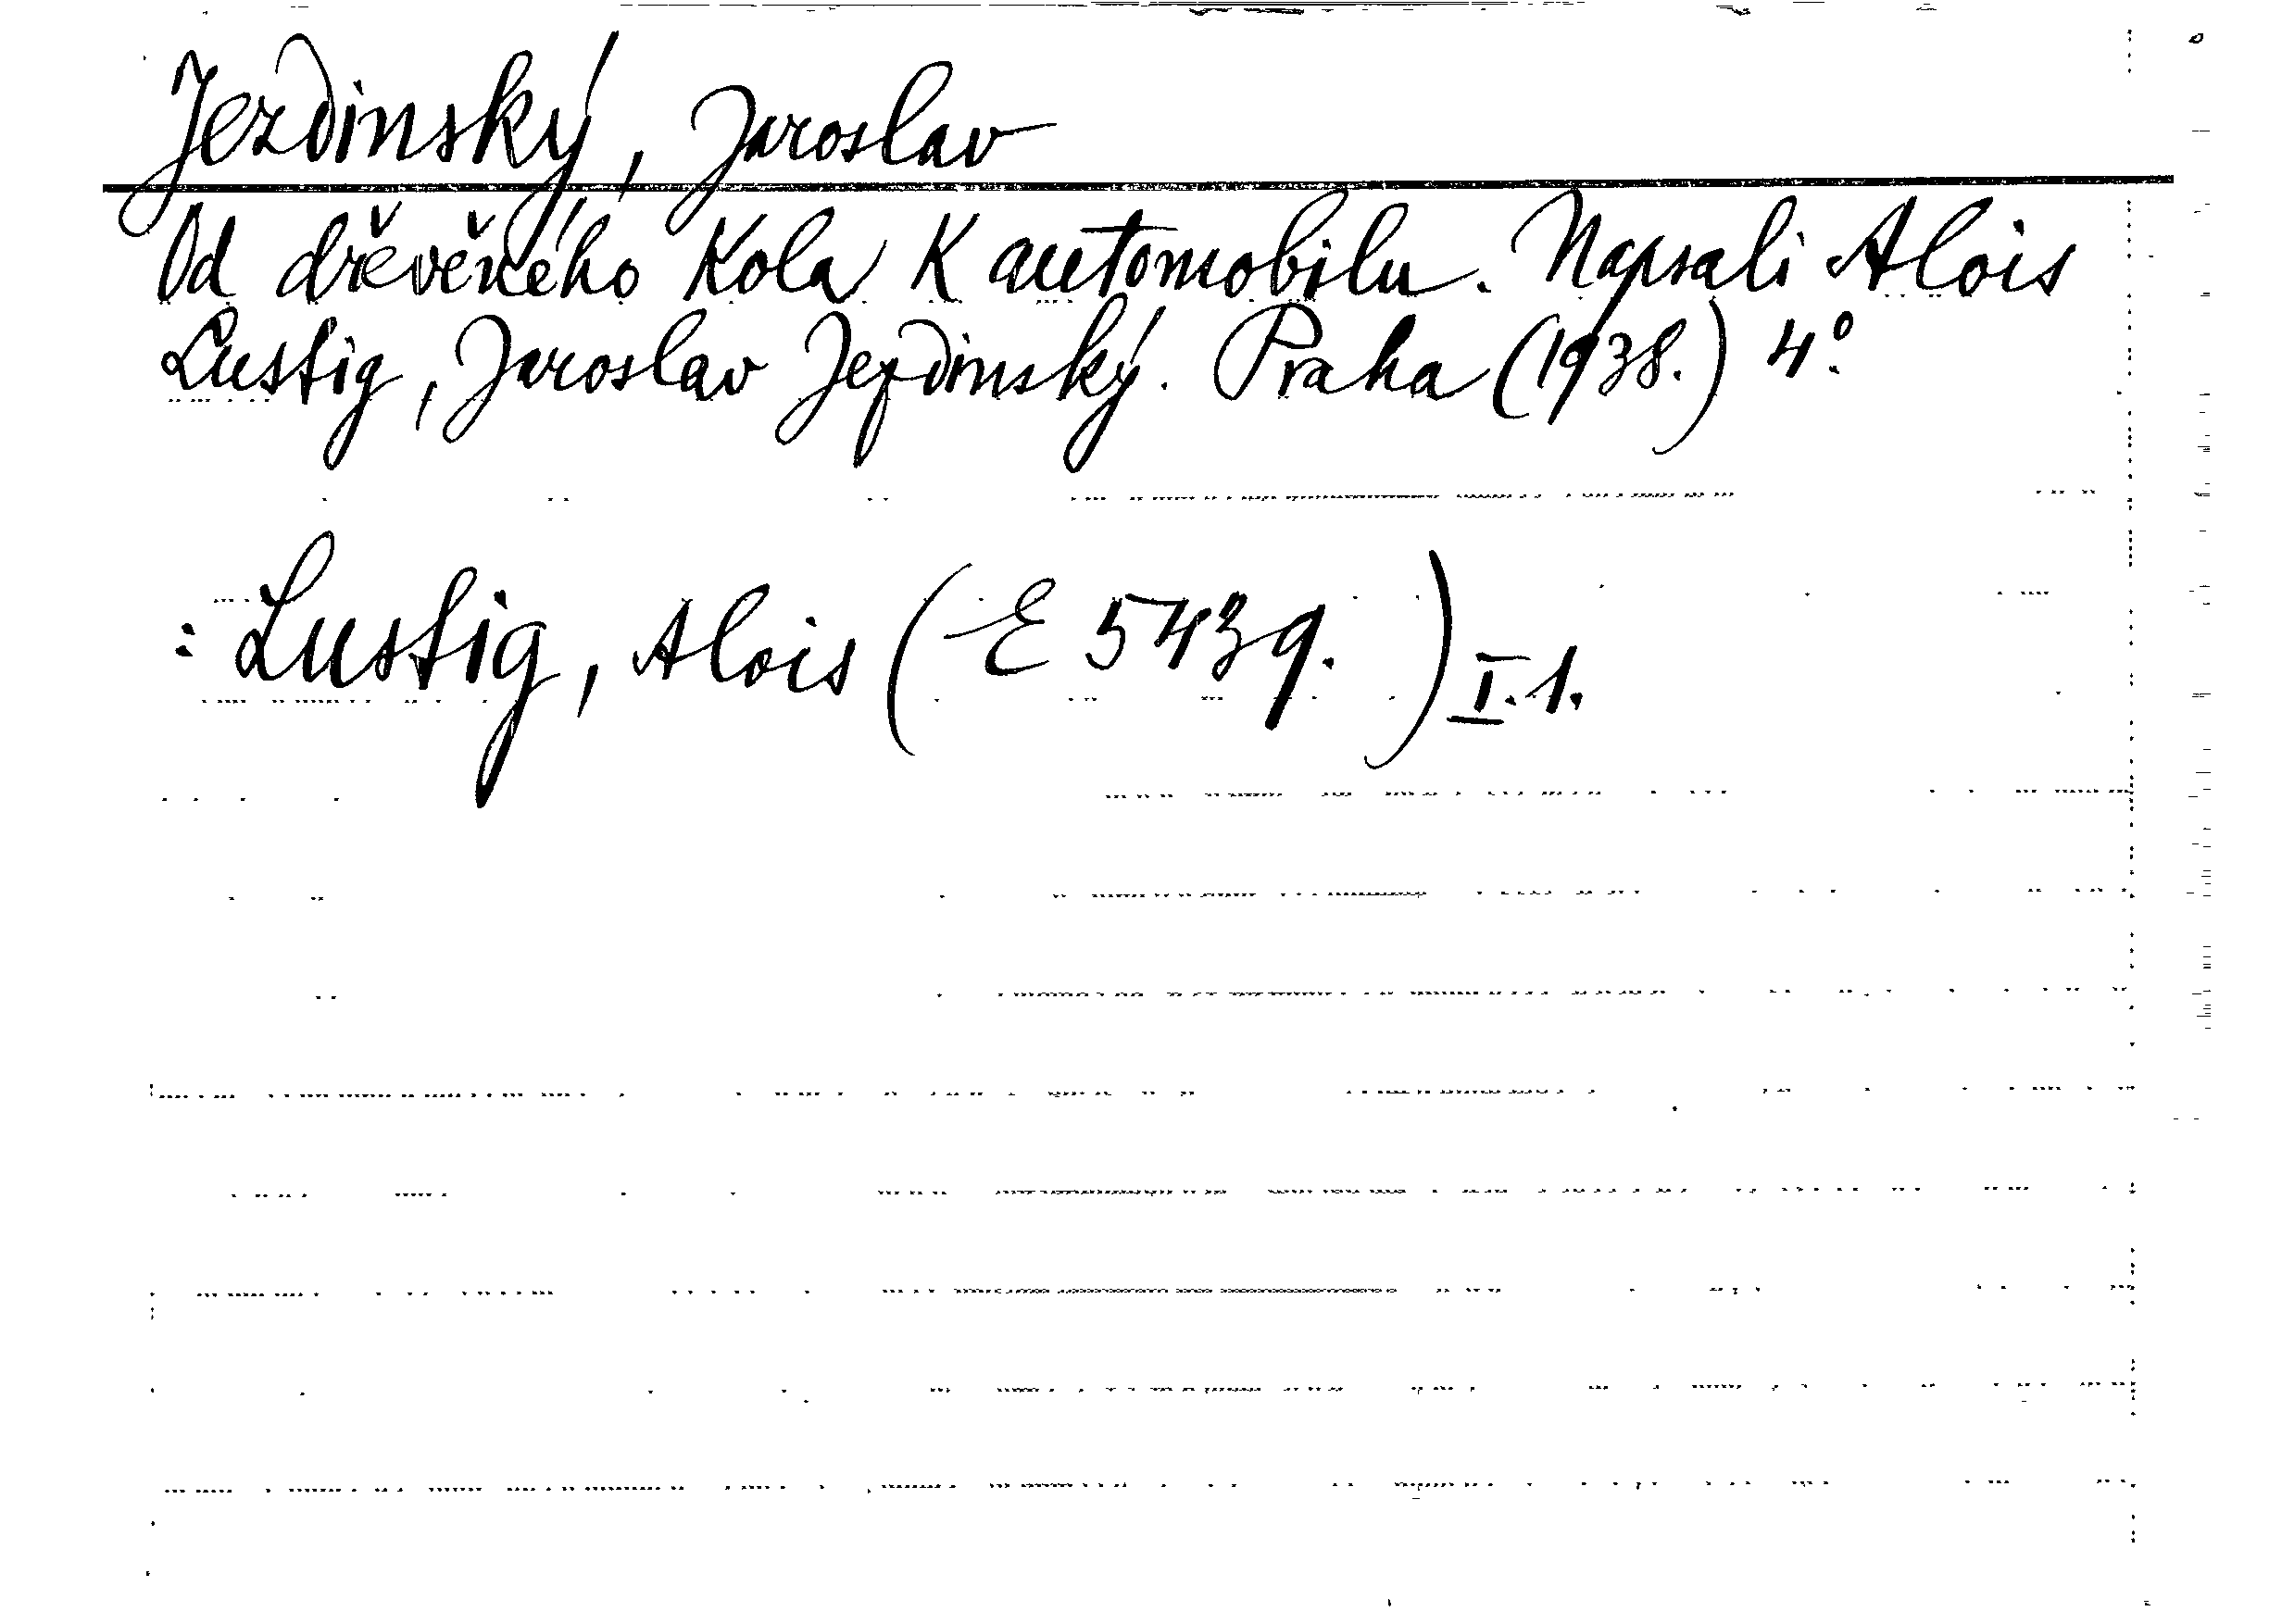 Jezdinský, Jaroslav
Od dřevěného kola k automobilu. Napsali Alois
Lustig, Jaroslav Jezdinský. Praha (1938.) 4°.
: Lustig, Alois (E 5439.) I.1.